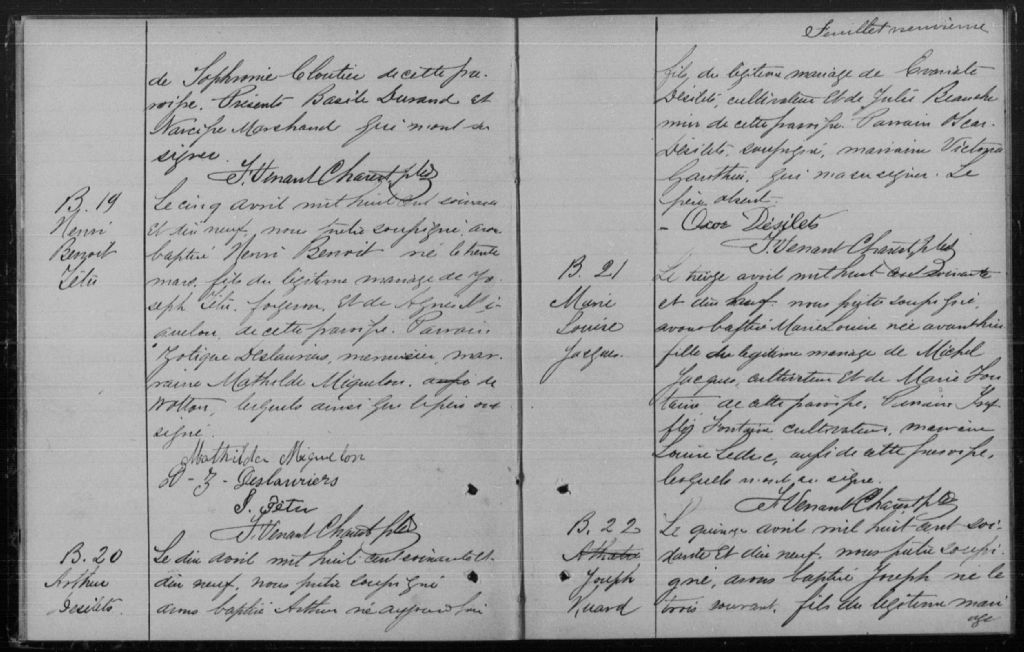 de Sophronie Cloutier de cette pa-
roisse. Présents Basile Durand et
Narcisse Marchand qui n'ont su
signer.
J. Venant Charest Ptre
B. 19
Henri
Benoit
Tétu
Le cinq avril mil huit cent soixante
et dix neuf, nous prêtre soussigné avons
baptisé Henri Benoit né le trente
mars, fils du légitime mariage de Jo-
seph Tétu, forgeron, et de Agnes Mi-
quelon, de cette paroisse. Parrain
Zotique Deslauriers, menuisier, mar-
raine Mathilde Miquelon, aussi de
Wotton, lesquels ainsi que le père ont
signé.
Mathilda Miquelon
D - Z - Deslauriers
J. Tétu
J. Venant Charest Ptre
B. 20
Arthur
Desilets.
Le dix avril mil huit cent soixante et
dix neuf, nous prêtre soussigné
avons baptisé Arthur né aujourd'hui
Feuillet neuvième
fils du légitime mariage de Evariste
Désilets, cultivateur et de Julie Beauche
min de cette paroisse. Parrain Oscar
Désilets, soussigné, marraine Victoria
Gauthier, qui n'a su signer. Le
père absent.
- Oscar Désilets
J. Venant Charest Ptre
B. 21
Marie
Louise
Jacques.
Le treize avril mil huit cent soixante
et dix neuf, nous prêtre soussigné,
avons baptisé Marie Louise née avant hier
fille du légitime mariage de Michel
Jacques, cultivateur et de Marie Fon
taine de cette paroisse. Parrain
Fontaine cultivateur, marraine
Louise Leclerc, aussi de cette paroisse,
lesquels n'ont su signer.
J. Venant Charest Ptre
B. 22
Joseph
Le quinze avril mil huit cent soi-
xante et dix neuf, nous prêtre soussi-
gné, avons baptisé Joseph né le
trois courant, fils du légitime mari
age